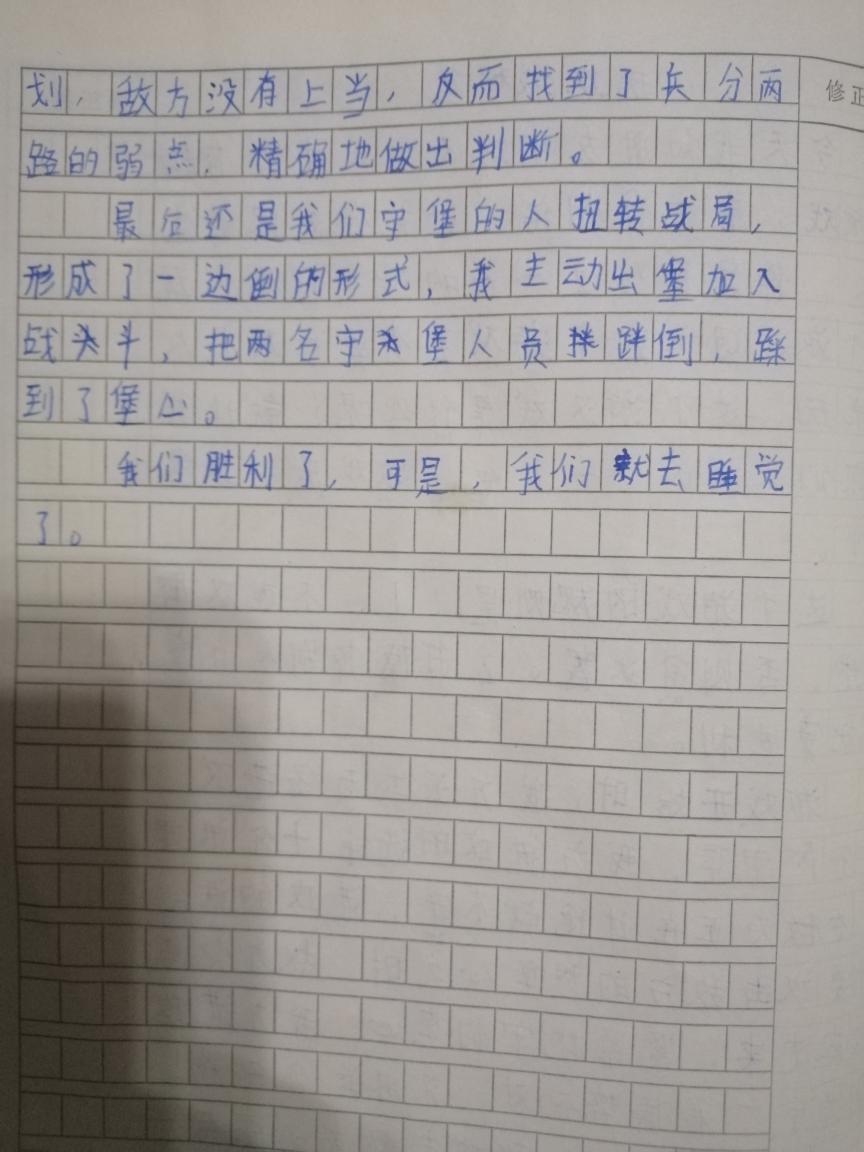 划，敌方没有上当，反而找到了兵分两
修正
路的弱点，精确地做出判断。
最后还是我们守堡的人扭转战局，
形成了一边倒的形式，我主动出堡加入
战斗，把两名守堡人员绊倒，踩
到了堡心。
我们胜利了，可是，我们就去睡觉
了。